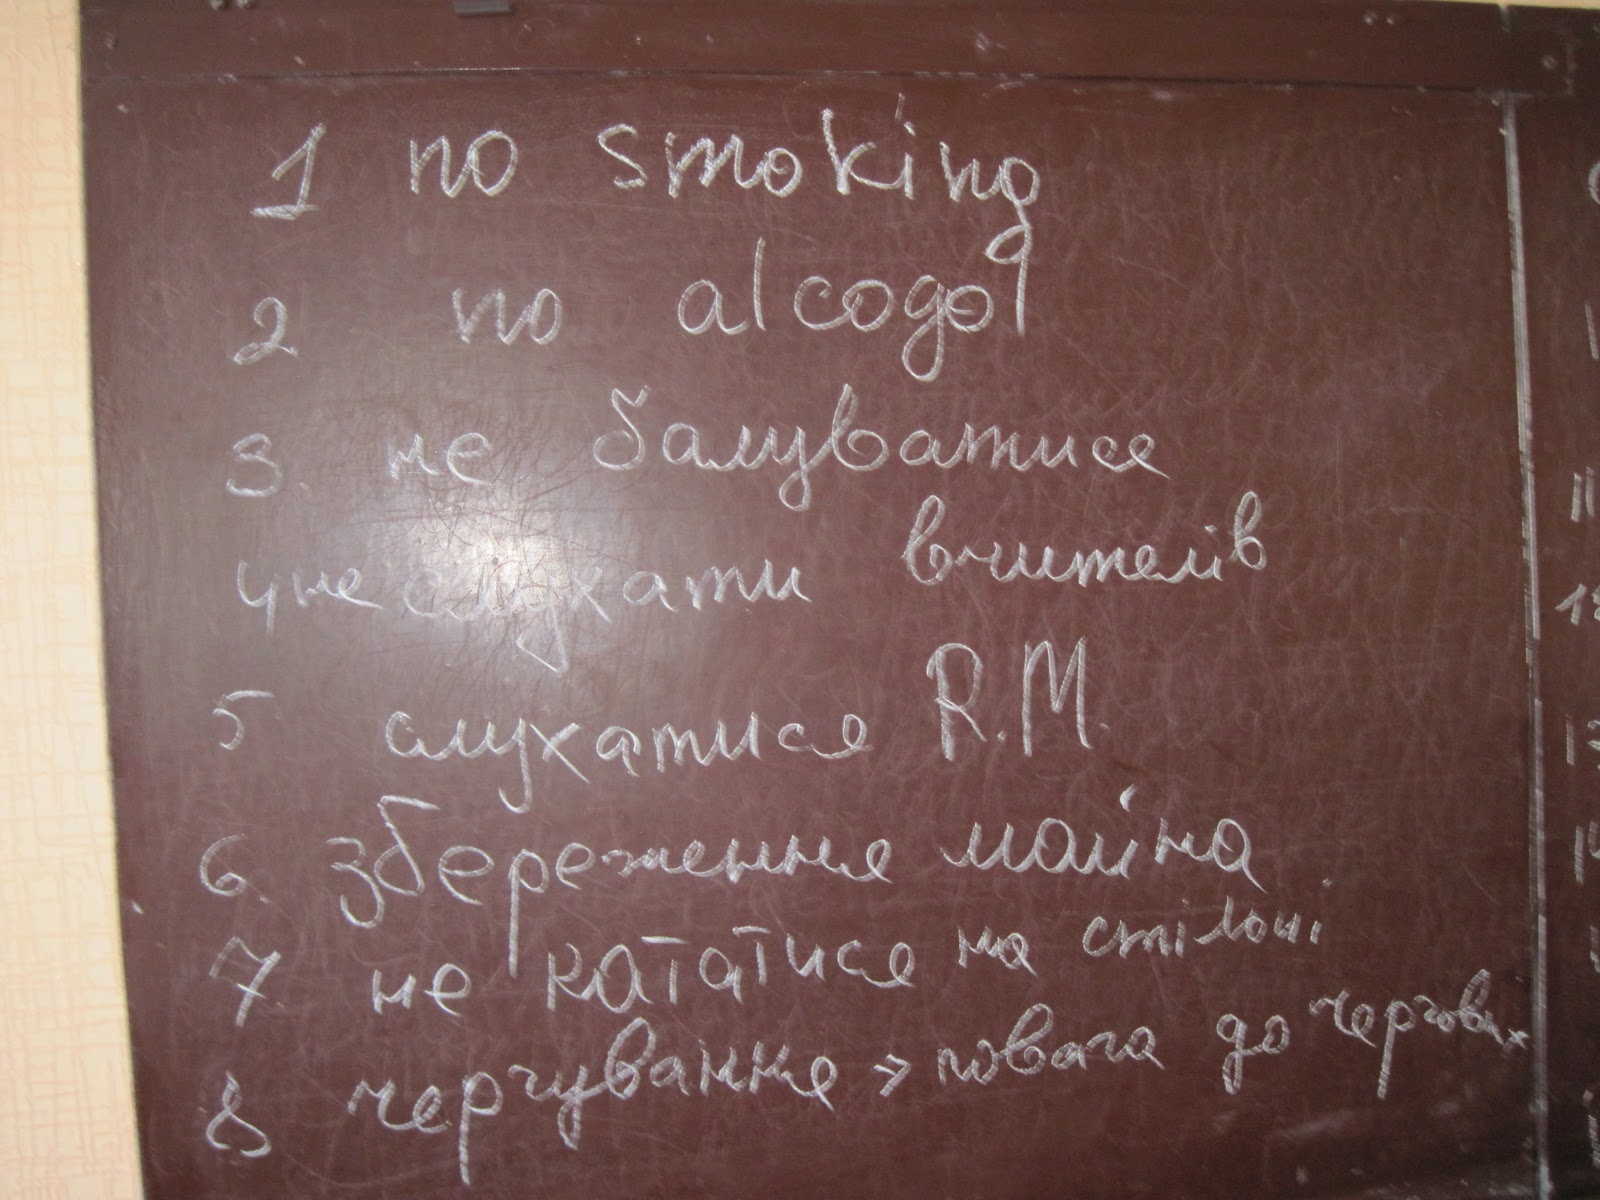 1 no smoking
2 no alcogol
3. не балуватися
4 не слухати вчителів
5 слухатися R.M.
6. збереження майна
7. не кататися на стільці
8 чергування → повага до чергових